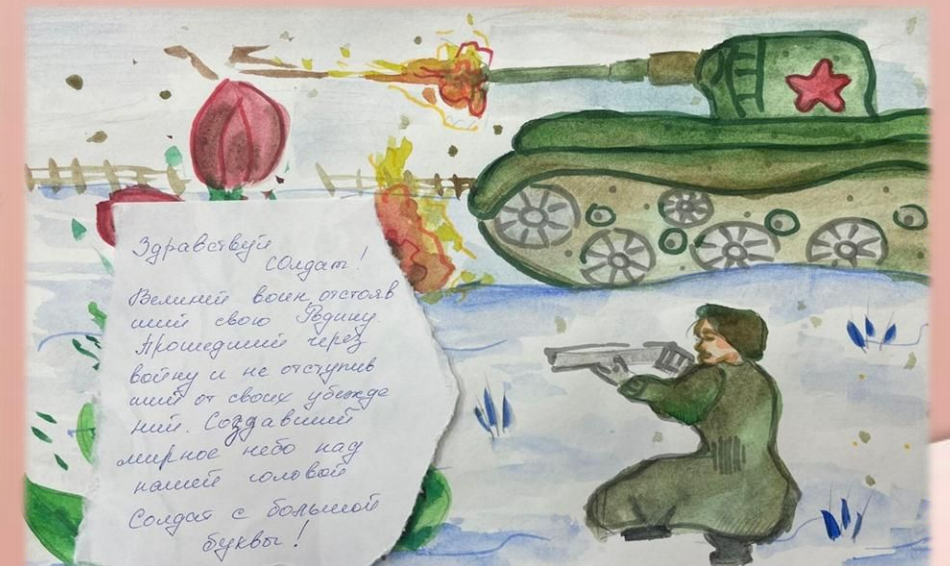 Здравствуй
Солдат!
Великий воин отстояв
ший свою Родину.
Прошедший через
войну и не отступив
ший от своих убежде
ний. Создавший
мирное небо над
нашей головой
Солдат с большой
буквы!